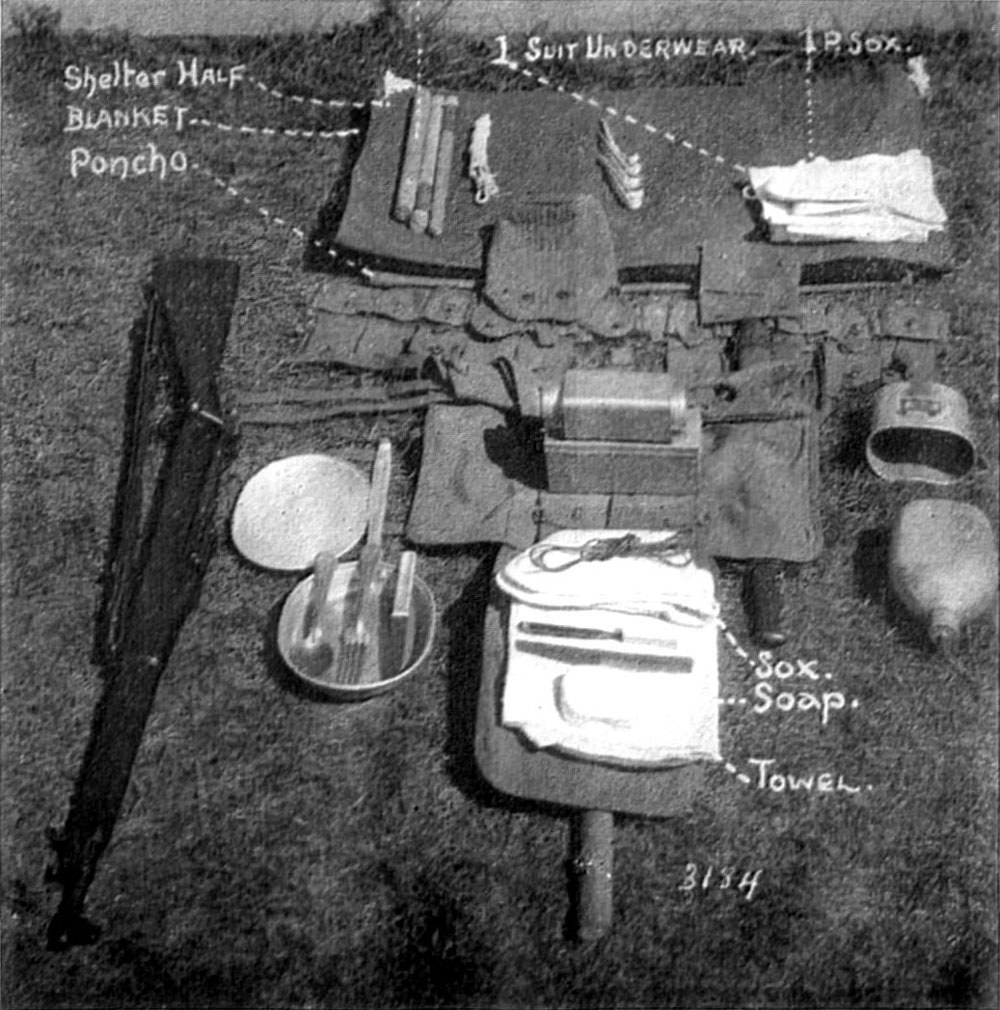 1 SUIT UNDERWEAR. 1 P. SOX.
Shelter HALF
BLANKET
Poncho.
Sox.
Soap.
TOWEL.
3184